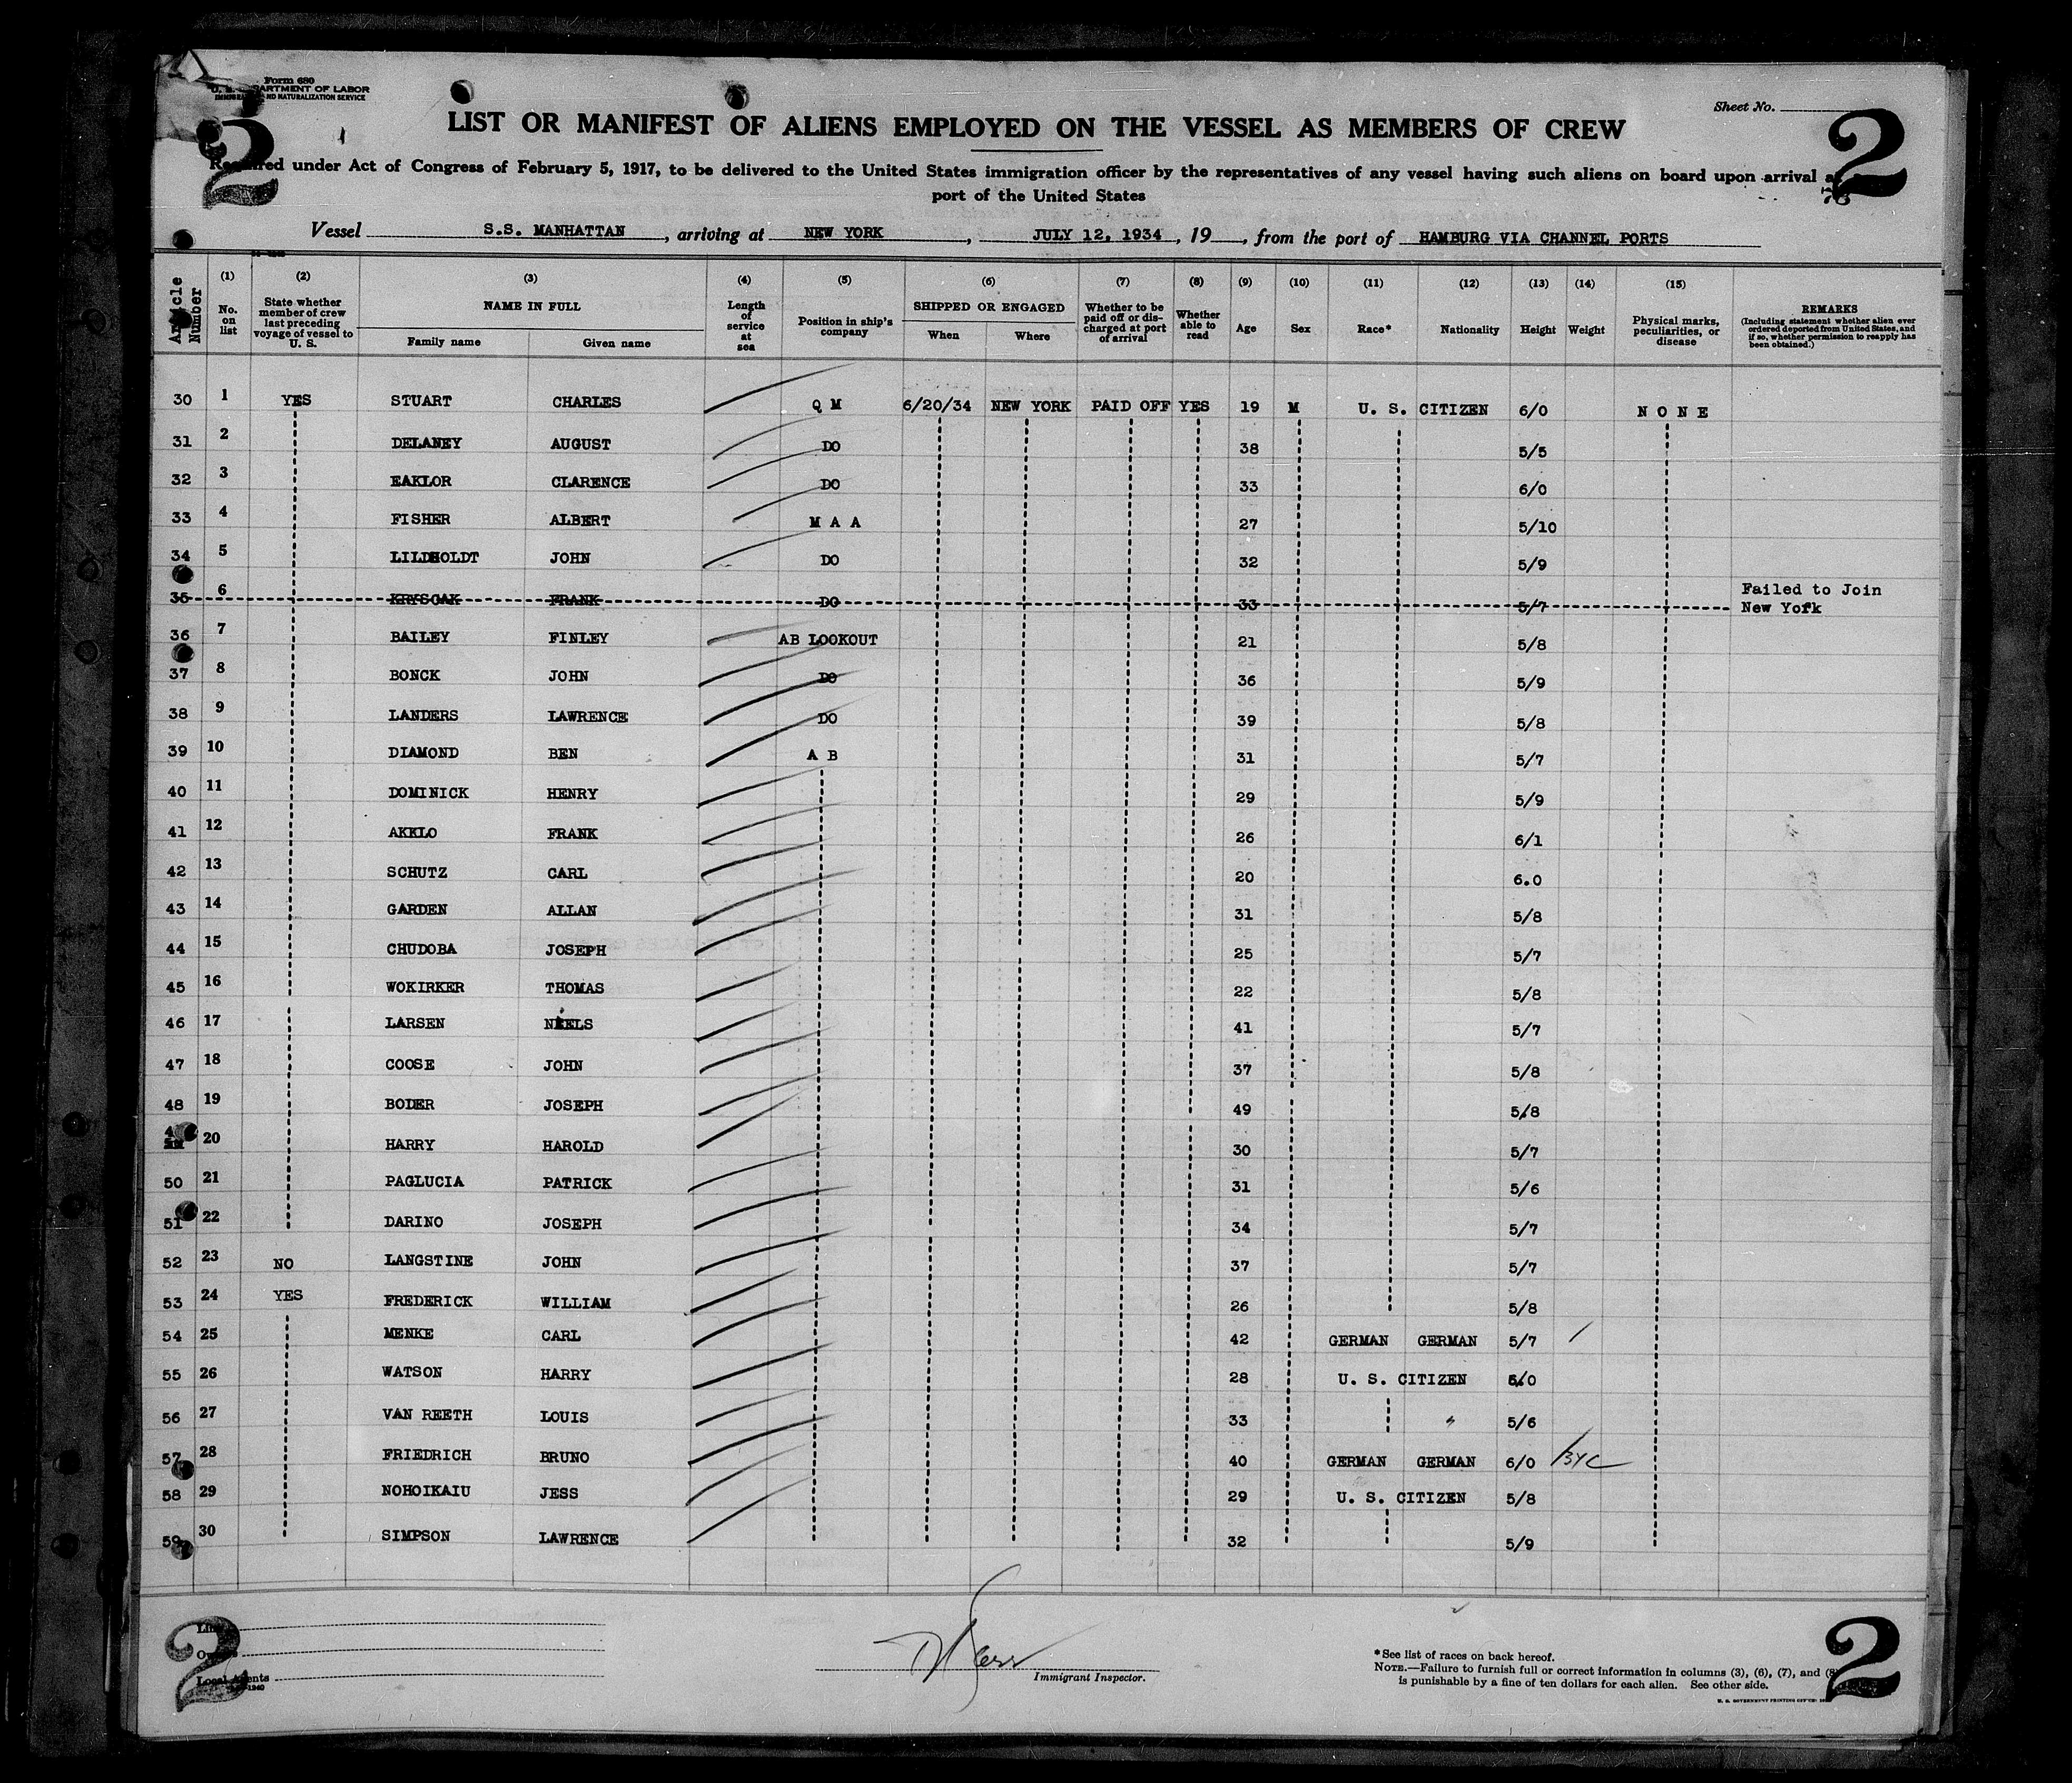 Form 680
U. S. DEPARTMENT OF LABOR
IMMIGRATION AND NATURALIZATION SERVICE
Sheet No.
2 2
LIST OR MANIFEST OF ALIENS EMPLOYED ON THE VESSEL AS MEMBERS OF CREW
Required under Act of Congress of February 5, 1917, to be delivered to the United States immigration officer by the representatives of any vessel having such aliens on board upon arrival at
port of the United States
Vessel S.S. MANHATTAN, arriving at NEW YORK, JULY 12, 1934, 19, from the port of HAMBURG VIA CHANNEL PORTS
Article Number (1) No. on list (2) State whether member of crew last preceding voyage of vessel to U. S. (3) NAME IN FULL Family name Given name (4) Length of service at sea (5) Position in ship's company (6) SHIPPED OR ENGAGED When Where (7) Whether to be paid off or discharged at port of arrival (8) Whether able to read (9) Age (10) Sex (11) Race* (12) Nationality (13) Height (14) Weight (15) Physical marks, peculiarities, or disease REMARKS (Including statement whether alien ever ordered deported from United States, and if so, whether permission to reapply has been obtained.)
30 1 YES STUART CHARLES Q M 6/20/34 NEW YORK PAID OFF YES 19 M U. S. CITIZEN 6/0 N O N E
31 2 DELANEY AUGUST DO 38 5/5
32 3 EAKLOR CLARENCE DO 33 6/0
33 4 FISHER ALBERT M A A 27 5/10
34 5 LILDHOLDT JOHN DO 32 5/9
35 6 KRYSCAK FRANK DO 33 5/7 Failed to Join New York
36 7 BAILEY FINLEY AB LOOKOUT 21 5/8
37 8 BONCK JOHN DO 36 5/9
38 9 LANDERS LAWRENCE DO 39 5/8
39 10 DIAMOND BEN A B 31 5/7
40 11 DOMINICK HENRY 29 5/9
41 12 AKKLO FRANK 26 6/1
42 13 SCHUTZ CARL 20 6.0
43 14 GARDEN ALLAN 31 5/8
44 15 CHUDOBA JOSEPH 25 5/7
45 16 WOKIRKER THOMAS 22 5/8
46 17 LARSEN NEELS 41 5/7
47 18 COOSE JOHN 37 5/8
48 19 BODER JOSEPH 49 5/8
20 HARRY HAROLD 30 5/7
50 21 PAGLUCIA PATRICK 31 5/6
51 22 DARINO JOSEPH 34 5/7
52 23 NO LANGSTINE JOHN 37 5/7
53 24 YES FREDERICK WILLIAM 26 5/8
54 25 MENKE CARL 42 GERMAN GERMAN 5/7
55 26 WATSON HARRY 28 U. S. CITIZEN 6/0
56 27 VAN REETH LOUIS 33 " 5/6
57 28 FRIEDRICH BRUNO 40 GERMAN GERMAN 6/0
58 29 NOHOIKAIU JESS 29 U. S. CITIZEN 5/8
59 30 SIMPSON LAWRENCE 32 5/9
Line
Owners
Local Agents
Immigrant Inspector.
*See list of races on back hereof.
NOTE.—Failure to furnish full or correct information in columns (3), (6), (7), and (8)
is punishable by a fine of ten dollars for each alien. See other side.
U. S. GOVERNMENT PRINTING OFFICE:
2 2